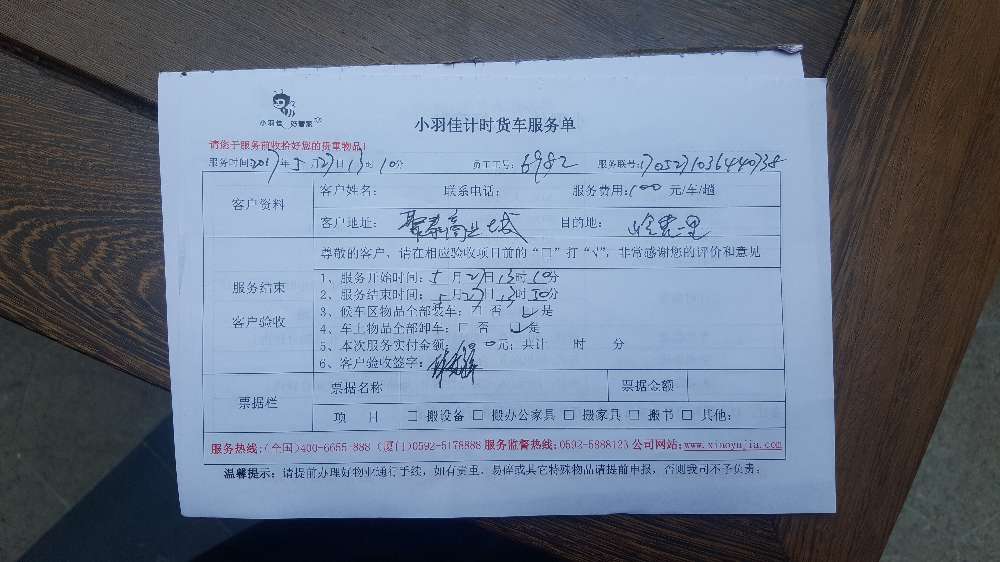 小羽佳 好管家
小羽佳计时货车服务单
请您于服务前收拾好您的贵重物品!
服务时间2017年5月27日13时10分 员工工号:6982 服务联号:1705271036440738
客户资料
客户姓名: 联系电话: 服务费用:100元/车/趟
客户地址:聚泰商业城 目的地:
尊敬的客户,请在相应验收项目前的“□”打“√”,非常感谢您的评价和意见
服务结束
客户验收
1、服务开始时间:5月27日13时10分
2、服务结束时间:5月27日13时50分
3、候车区物品全部装车:□ 否 □ 是
4、车上物品全部卸车:□ 否 □ 是
5、本次服务实付金额:100元;共计 时 分
6、客户验收签字:
票据栏
票据名称 票据金额
项 目 □ 搬设备 □ 搬办公家具 □ 搬家具 □ 搬书 □ 其他:
服务热线:(全国)400-6655-888 (厦门)0592-5178888 服务监督热线:0592-5888123 公司网站:www.xiaoyujia.com
温馨提示:请提前办理好物业通行手续,如有贵重、易碎或其它特殊物品请提前申报,否则我司不予负责;